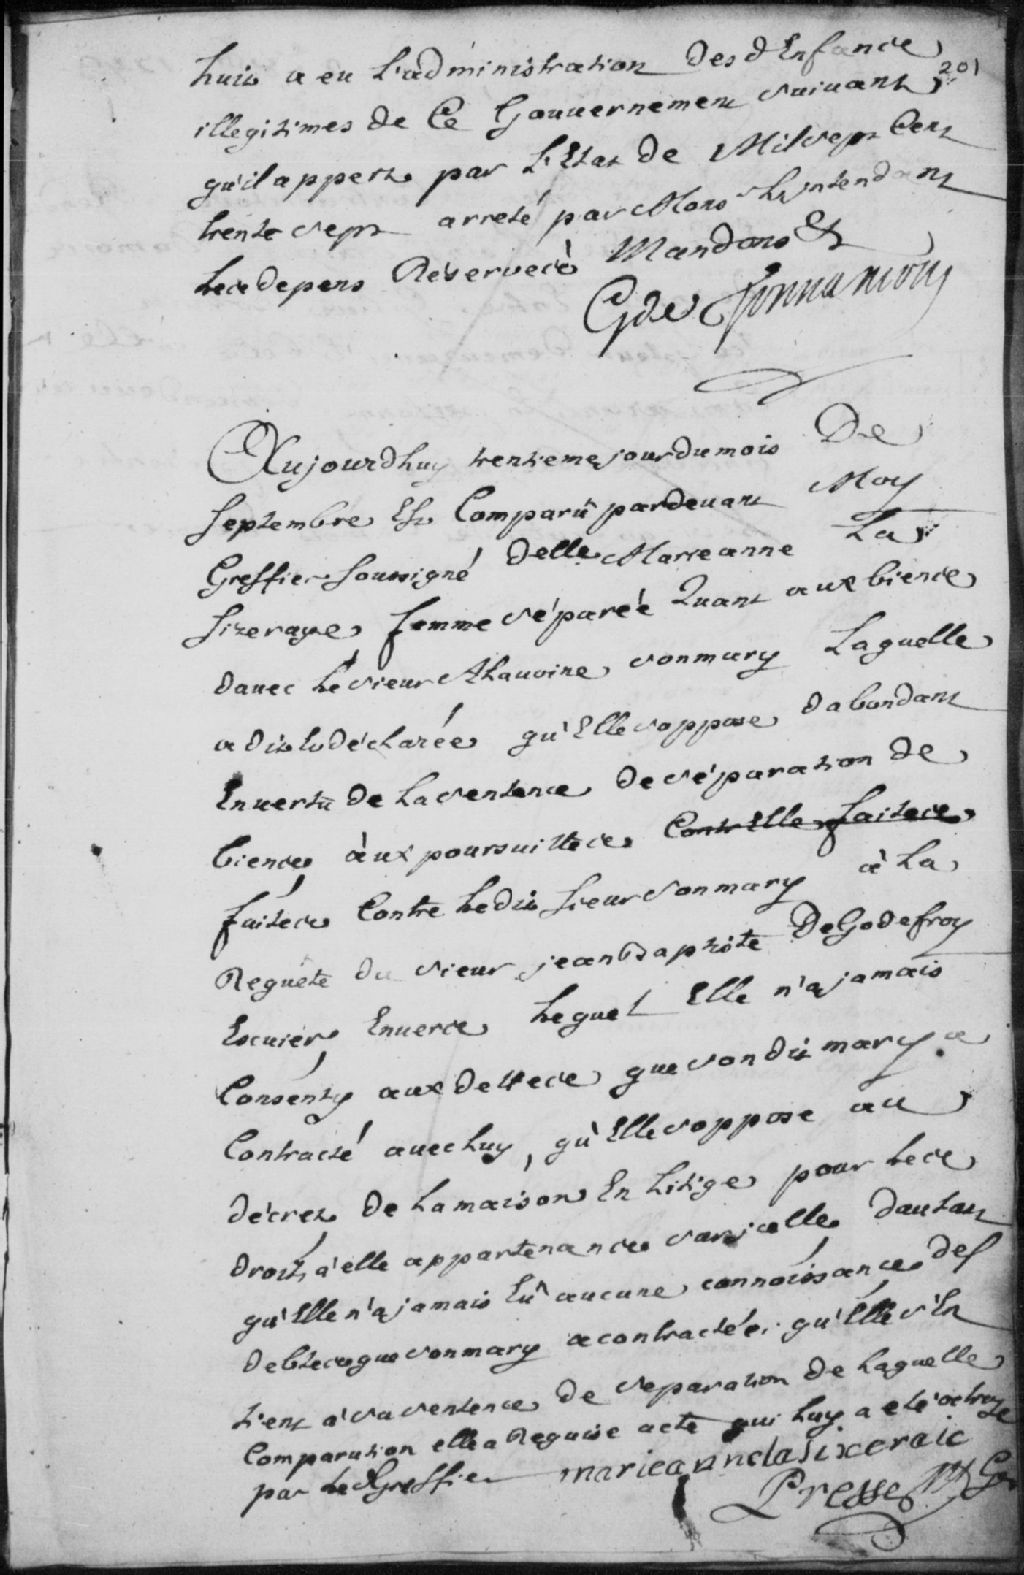 huis a eu L'administration Des d Enfance
201
illegitimes de Ce Gouvernement suivant
qu'il appert par L'Etat de Mil sept Cent
trente sept arreté par Mons L'yntendant
Lesdepens Réservecé Mandons &
Gde Tonnancour
Aujourdhuy trentieme jour du mois De
septembre Est Comparü pardevant Moy
Greffier soussigné Delle Marieanne La
sizeraye femme séparée Quant aux bience
davec Le sieur Lhauoine sonmary Laquelle
a dit & déclarée qu'Elle soppose dabondant
En vertu de La sentence de séparation de
bience aux poursuittece Contr'Elle faitece
faitece Contre Ledit sieur sonmary à La
Requête du sieur jeanbaptiste DeGodefroy
Escuier Enverce Lequel Elle n'a jamais
Consenty aux dettece que son dit mary a
Contracté avec Luy, qu'Elle soppose au
décret de La maison En Litige pour Lece
droits à elle appartenance sur icelle dautant
qu'Elle n'a jamais Eû aucune connoissance des
debtece que sonmary a contractée, qu'Elle s'En
tient à sa sentence de separation de Laquelle
Comparution elle a Requise acte qui Luy a eté octroyé
par Led Greffier marieannelasixeraie
Pressé Nt Gr